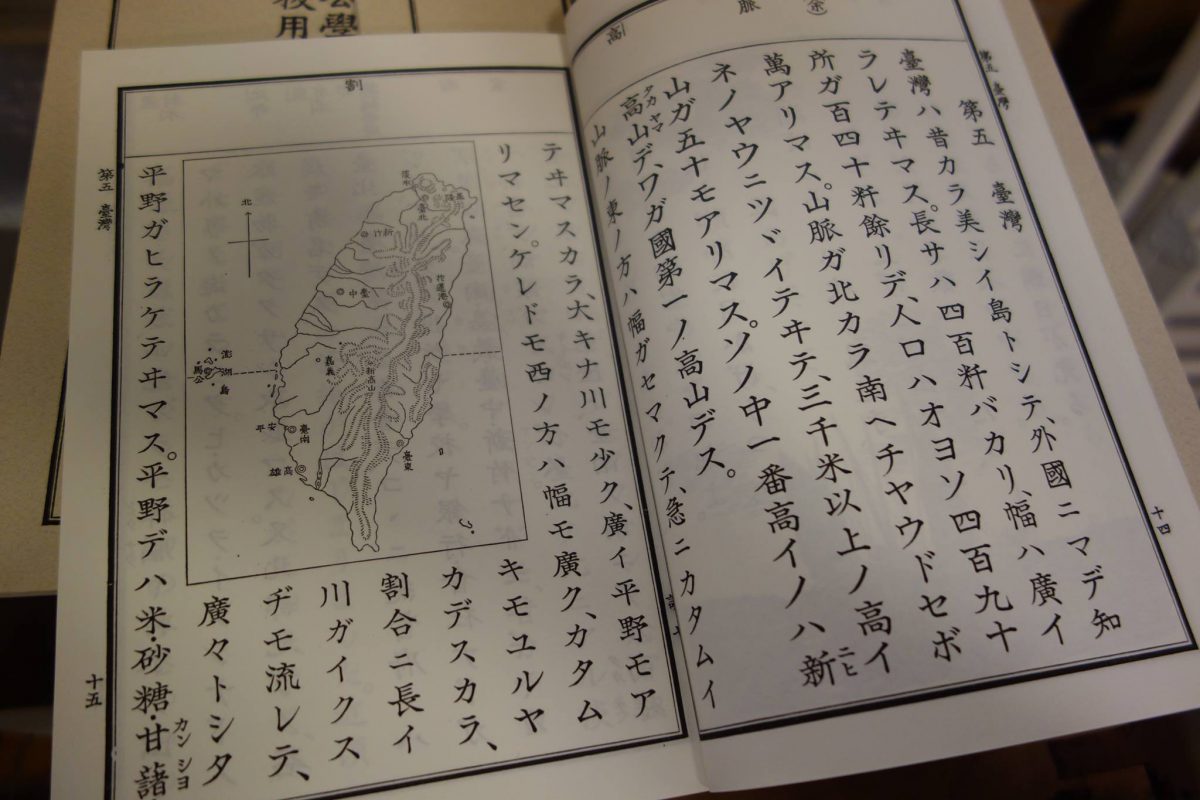 第五 臺灣
十四
(余)
脈
高
第五 臺灣
臺灣ハ昔カラ美シイ島トシテ、外國ニマデ知
ラレテヰマス。長サハ四百粁バカリ、幅ハ廣イ
所ガ百四十粁餘リデ、人口ハオヨソ四百九十
萬アリマス。山脈ガ北カラ南ヘチヤウドセボ
ネノヤウニツヾイテヰテ、三千米以上ノ高イ
山ガ五十モアリマス。ソノ中一番高イノハ新
ニヒ
高山デ、ワガ國第一ノ高山デス。
タカヤマ
山脈ノ東ノ方ハ幅ガセマクテ、急ニカタムイ
割
テヰマスカラ、大キナ川モ少ク、廣イ平野モア
リマセン。ケレドモ西ノ方ハ幅モ廣ク、カタム
キモユルヤ
カデスカラ、
割合ニ長イ
川ガイクス
ヂモ流レテ、
廣々トシタ
平野ガヒラケテヰマス。平野デハ米・砂糖・甘藷
カンシヨ
北
淡水
基隆
臺北
新竹
臺中
花蓮港
澎湖島
馬公
嘉義
新高山
安平
臺南
高雄
臺東
第五 臺灣
十五
公學
校用